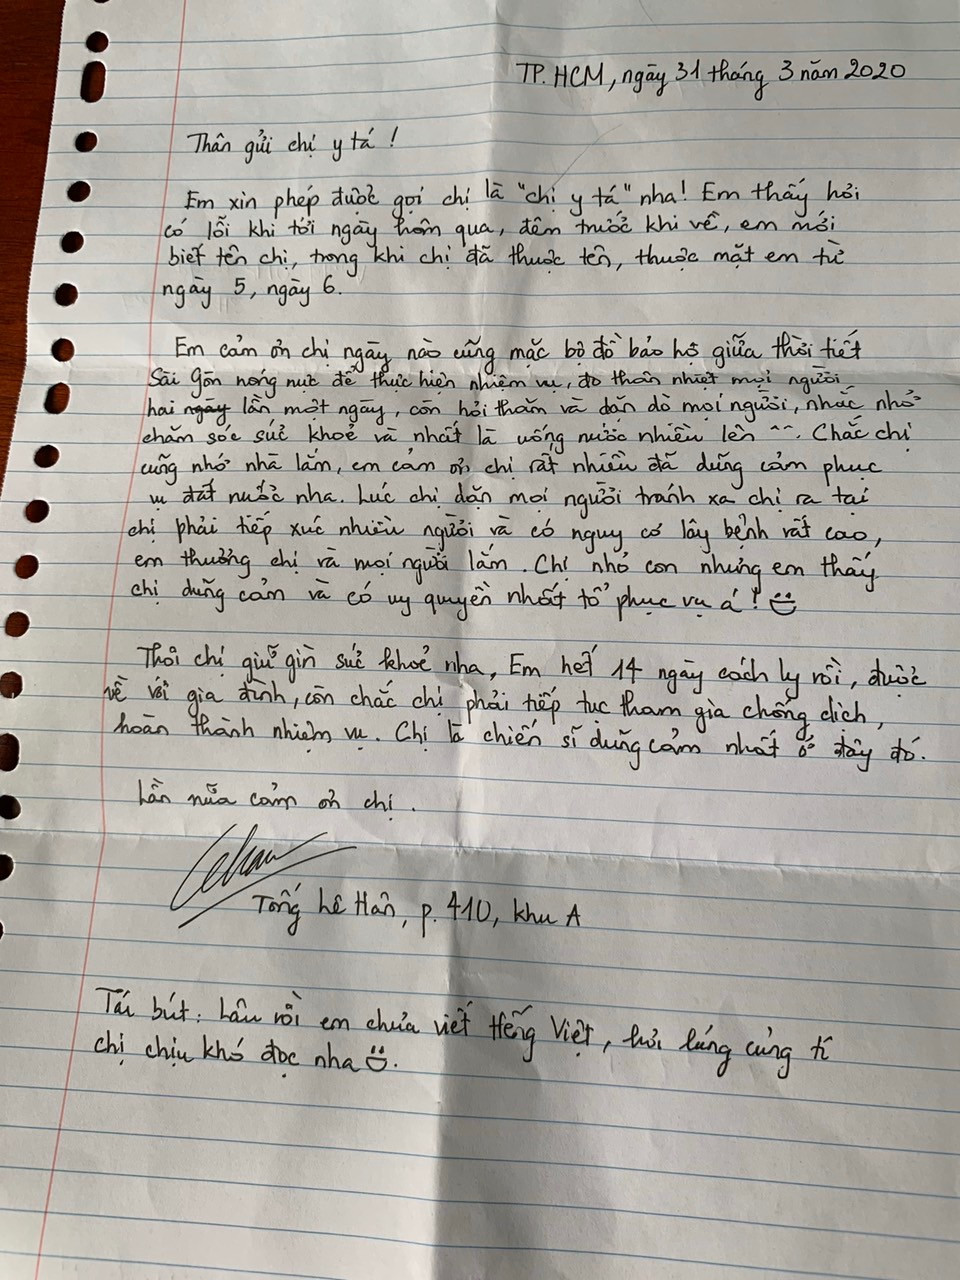 TP. HCM, ngày 31 tháng 3 năm 2020
Thân gửi chị y tá!
Em xin phép được gọi chị là "chị y tá" nha! Em thấy hơi
có lỗi khi tới ngày hôm qua, đêm trước khi về, em mới
biết tên chị, trong khi chị đã thuộc tên, thuộc mặt em từ
ngày 5, ngày 6.
Em cảm ơn chị ngày nào cũng mặc bộ đồ bảo hộ giữa thời tiết
Sài Gòn nóng nực để thực hiện nhiệm vụ, đo thân nhiệt mọi người
hai ngày lần một ngày, còn hỏi thăm và dặn dò mọi người, nhắc nhở
chăm sóc sức khoẻ và nhất là uống nước nhiều lên ^^. Chắc chị
cũng nhớ nhà lắm, em cảm ơn chị rất nhiều đã dũng cảm phục
vụ đất nước nha. Lúc chị dặn mọi người tránh xa chị ra tại
chị phải tiếp xúc nhiều người và có nguy cơ lây bệnh rất cao,
em thương chị và mọi người lắm. Chị nhỏ con nhưng em thấy
chị dũng cảm và có uy quyền nhất tổ phục vụ á! ☺
Thôi chị giữ gìn sức khoẻ nha, Em hết 14 ngày cách ly rồi, được
về với gia đình, còn chắc chị phải tiếp tục tham gia chống dịch,
hoàn thành nhiệm vụ. Chị là chiến sĩ dũng cảm nhất ở đây đó.
Lần nữa cảm ơn chị.
Tống Lê Hân, p. 410, khu A
Tái bút: Lâu rồi em chưa viết tiếng Việt, hơi lúng củng tí
chị chịu khó đọc nha ☺.